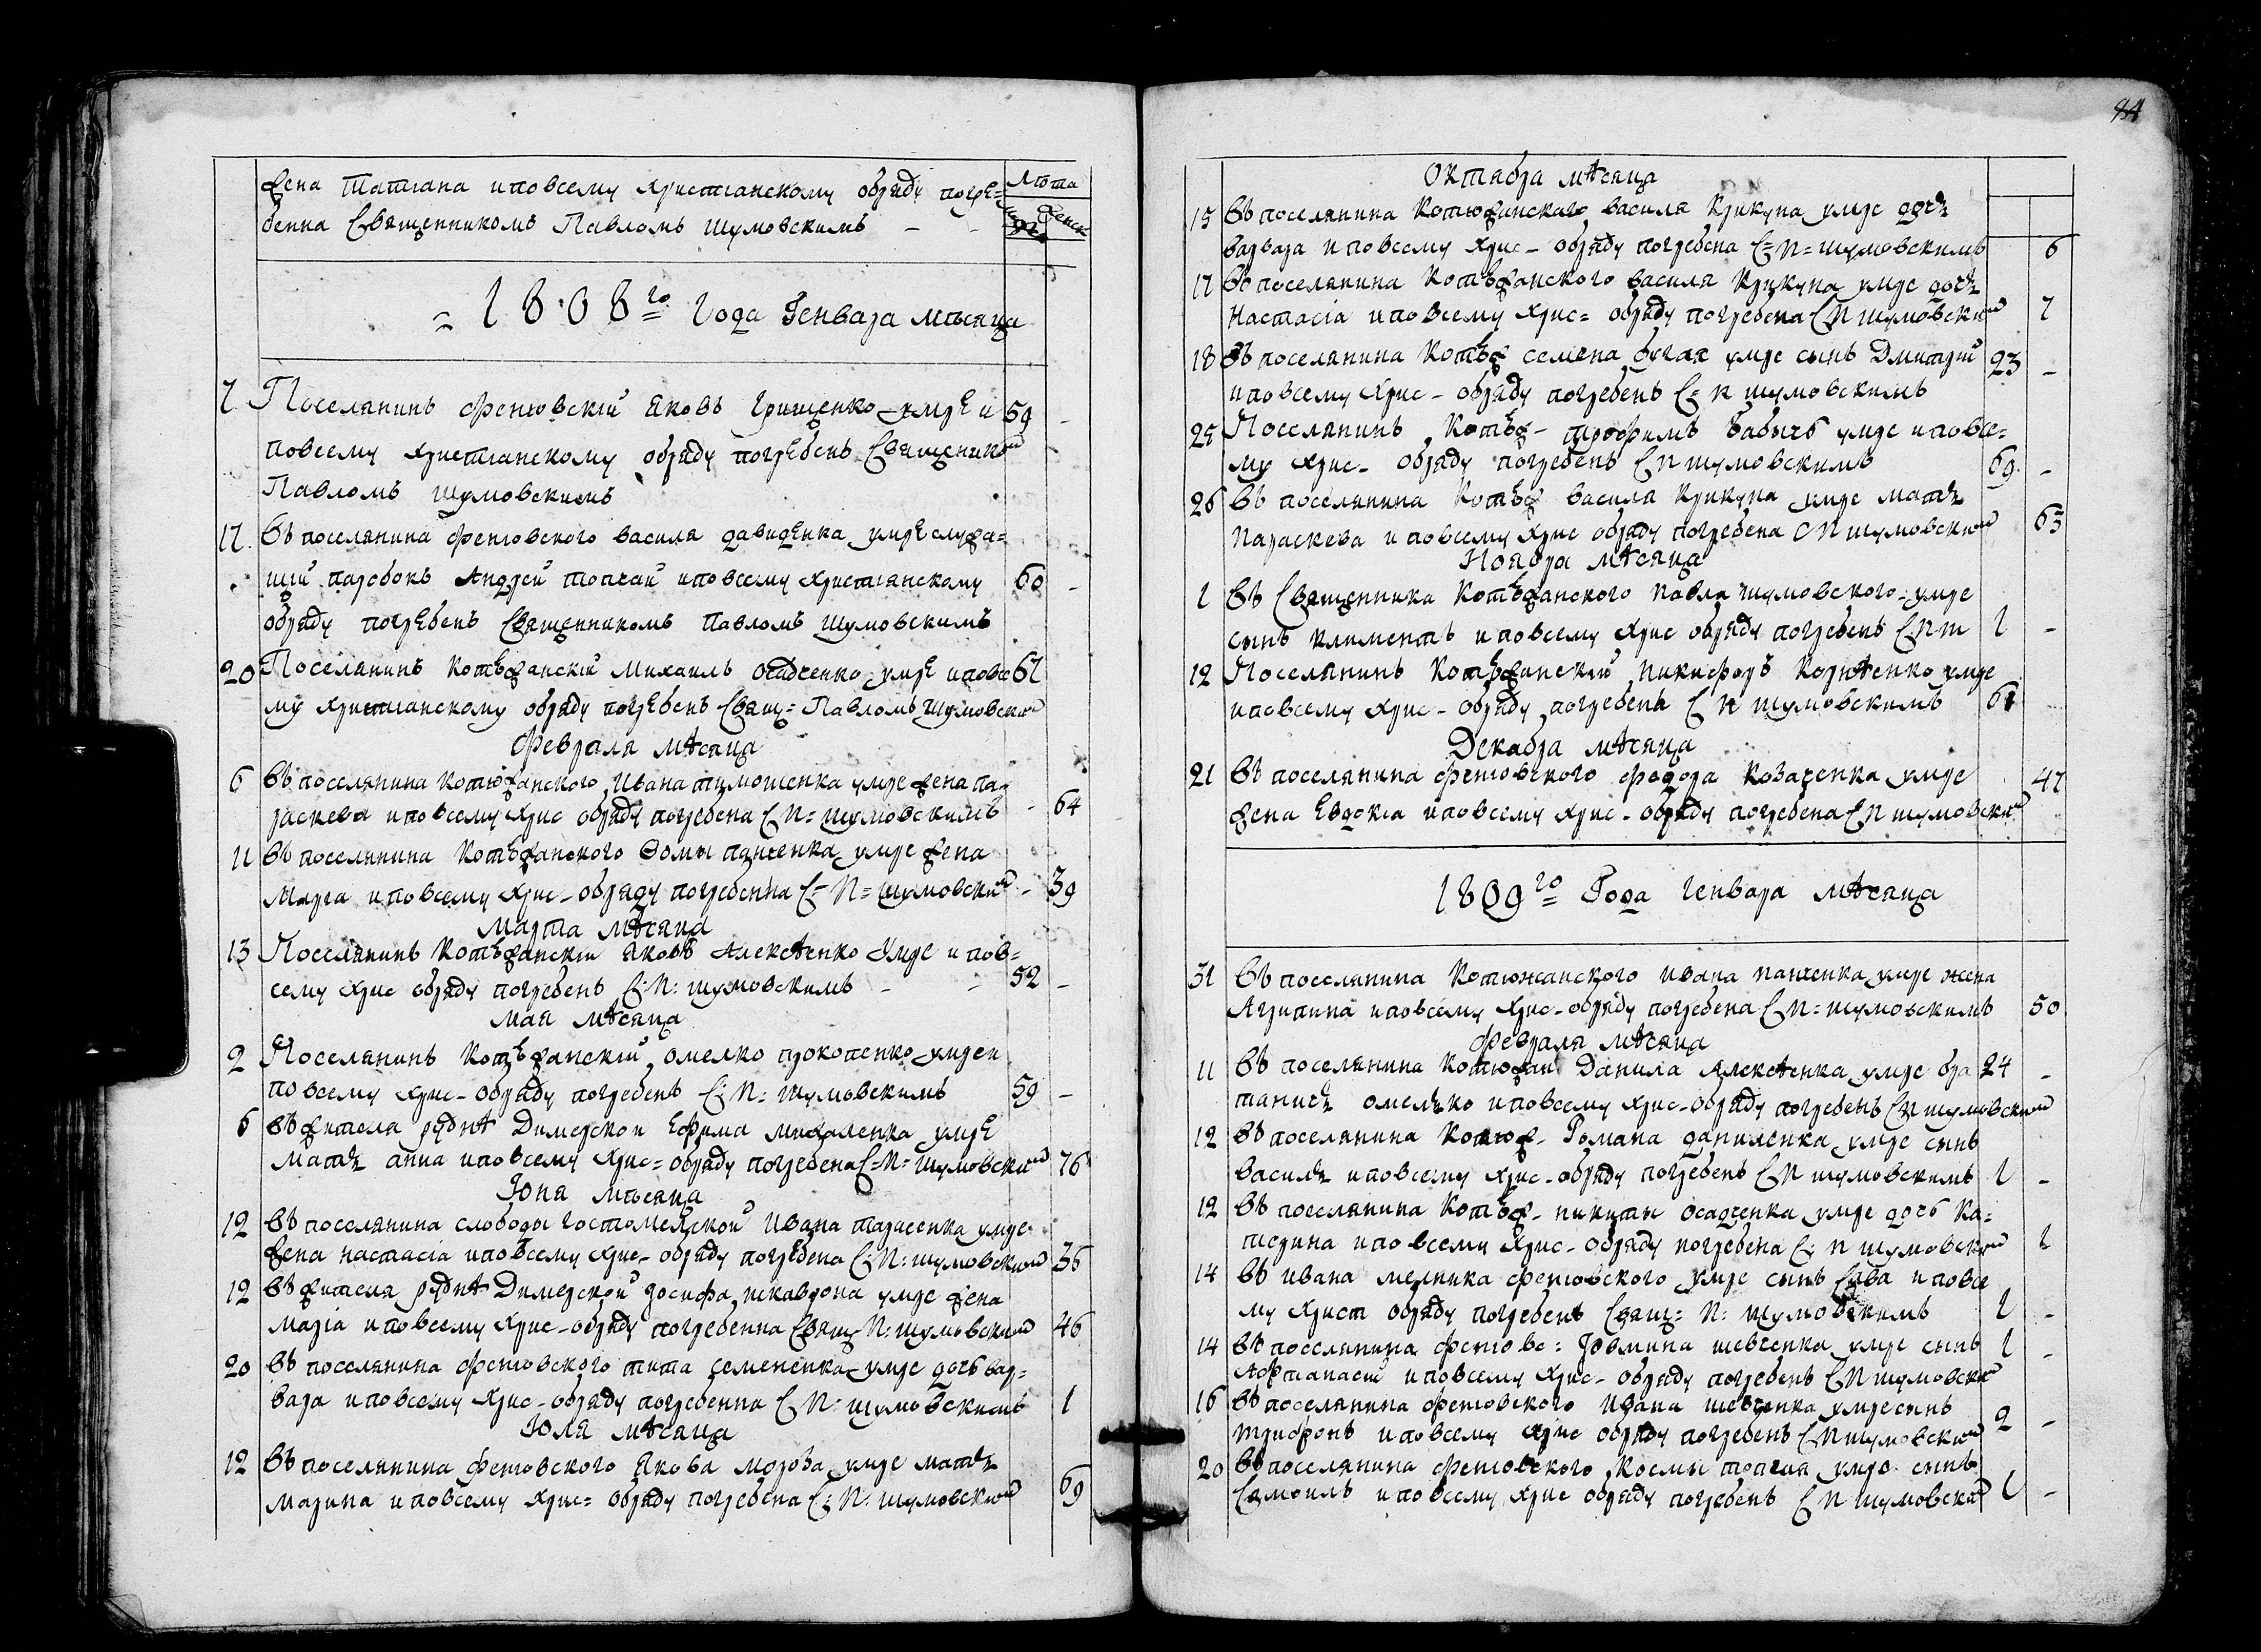 жена Татіана и по всему христіанскому обряду погре=
бенна Священникомъ Павломъ Шумовскимъ - -
Лѣта
женск
= 1808го Года Генваря мѣсяца
7 Поселянинъ феневскій Яковъ Грищенко умре и 59 -
по всему христіанскому обряду погребенъ Священникомъ
Павломъ Шумовскимъ
17. Въ поселянина феневского Василя Давиденка умре служа=
щій паробокъ Андрей Топчай и по всему христіянскому 60 -
обряду погребенъ Священникомъ Павломъ Шумовскимъ
20 Поселянинъ Котюжанскій Михаилъ Осадченко умре и по все 67
му христіанскому обряду погребенъ Свящ= Павломъ Шумовским
Февраля мѣсяца
6 Въ поселянина Котюжанского Ивана Тимошенка умре жена Па
раскева и по всему хрис обряду погребена С П= Шумовскимъ - 64
11 Въ поселянина Котюжанского Ѳомы Панченка умре жена
Марѳа и по всему хрис- обряду погребенна С= П= Шумовским - 39
Марта мѣсяца
13 Поселянинъ Котюжанскій Яковъ Алексѣенко умре и пов=
сему хрис обряду погребенъ С: П: Шумовскимъ - - 52 -
Мая мѣсяца
2 Поселянинъ Котюжанскій Омелко Прокопенко умре и
по всему хрис- обряду погребенъ С: П: Шумовскимъ 59 -
6 Въ жителя рудни Димерской Ефима Михаленка умре
мать Анна и по всему хрис= обряду погребена С= П= Шумовским 76
Іюня мѣсяца
12 Въ поселянина слободы Гостомелской Ивана Тарасенка умре
жена Настасіа и по всему хрис- обряду погребена С: П: Шумовским 36
12 Въ жителя рудни Димерской Іосифа Шкаврона умре жена
Маріа и по всему хрис- обряду погребенна Свящ П: Шумовским 46
20 Въ поселянина феневского Тита Семененка умре дочь Вар=
вара и по всему хрис- обряду погребенна С П: Шумовскимъ 1
Юля мѣсяца
12 Въ поселянина феневского Якова Мороза умре мать
Марина и по всему хрис= обряду погребена С: П: Шумовским 69
94
Октября мѣсяца
15 Въ поселянина Котюжанскаго Василя Крикуна умре дочь
Варвара и по всему хрис- обряду погребена С= П= Шумовскимъ 6
17 Въ поселянина Котюжанского Василя Крикуна умре дочь
Настасіа и по всему хрис= обряду погребена С П Шумовским 7
18 Въ поселянина Котюж Семена Бугая умре сынъ Дмитрій 23 -
и по всему хрис- обряду погребенъ С= П Шумовскимъ
25 Поселянинъ Котюж- Трофимъ Бабычъ умре и по все=
му хрис- обряду погребенъ С П Шумовскимъ 69. -
26 Въ поселянина Котюж Василя Крикуна умре мать
Параскева и по всему хрис обряду погребена С П Шумовским 63
Ноября мѣсяца
1 Въ Священника Котюжанского Павла Шумовского умре
сынъ Климентъ и по всему хрис обряду погребенъ С П Ш 1 -
12 Поселянинъ Котюжанскій Никифоръ Корнѣенко умре
и по всему хрис- обряду погребенъ С П Шумовскимъ 61
Декабря мѣсяца
21 Въ поселянина феневского Федора Козаченка умре 47
жена Евдокіа и по всему хрис- обряду погребена С П Шумовским
1809го Года Генваря мѣсяца
31 Въ поселянина Котюжанского Ивана Панченка умре жена
Агрипина и по всему хрис- обряду погребена С П= Шумовскимъ 50
Февраля мѣсяца
11 Въ поселянина Котюжан Данила Алексѣенка умре бра 24 -
таничъ Омелько и по всему хрис- обряду погребенъ С П Шумовским
12 Въ поселянина Котюж- Романа Даниленка умре сынъ
Василь и по всему хрис- обряду погребенъ С П Шумовскимъ 1 -
12 Въ поселянина Котюж- Никиты Осадченка умре дочь Ка=
терина и по всему хрис- обряду погребена С: П Шумовским 1
14 Въ Ивана мелника феневского умре сынъ Сава и по все
му христ обряду погребенъ Свящ= П: Шумовскимъ 1 -
14 Въ поселянина фенев: Шевченка умре сынъ 1 -
Афтанасій и по всему хрис- обряду погребенъ С П Шумовским
16 Въ поселянина феневского Ивана Шевченка умре сынъ 2 -
Трифонъ и по всему хрис обряду погребенъ С П Шумовским
20 Въ поселянина феневского Космы Топчая умре сынъ
Самоилъ и по всему хрис обряду погребенъ С П Шумовским 1 -